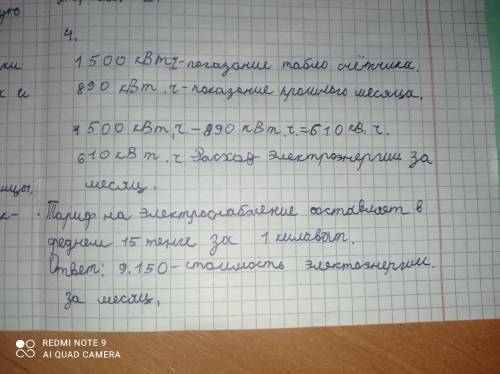 4.
1500 кВт.ч-показание табло счётчика.
ки
к и
890 кВт.ч-показание прошлого месяца.
1500 кВт.ч-890 кВт.ч.=610кВ.ч.
610кВт.ч Расход электроэнергии за
месяц.
ицы,
к-
Тариф на электроснабление составляет в
среднем 15 тенге за 1 киловат.
Ответ: 9.150-стоимость электоэнергии.
за месяц,
REDMI NOTE 9
AI QUAD CAMERA